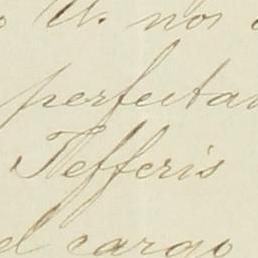 U. nos
perfectam
Jefferis
el cargo